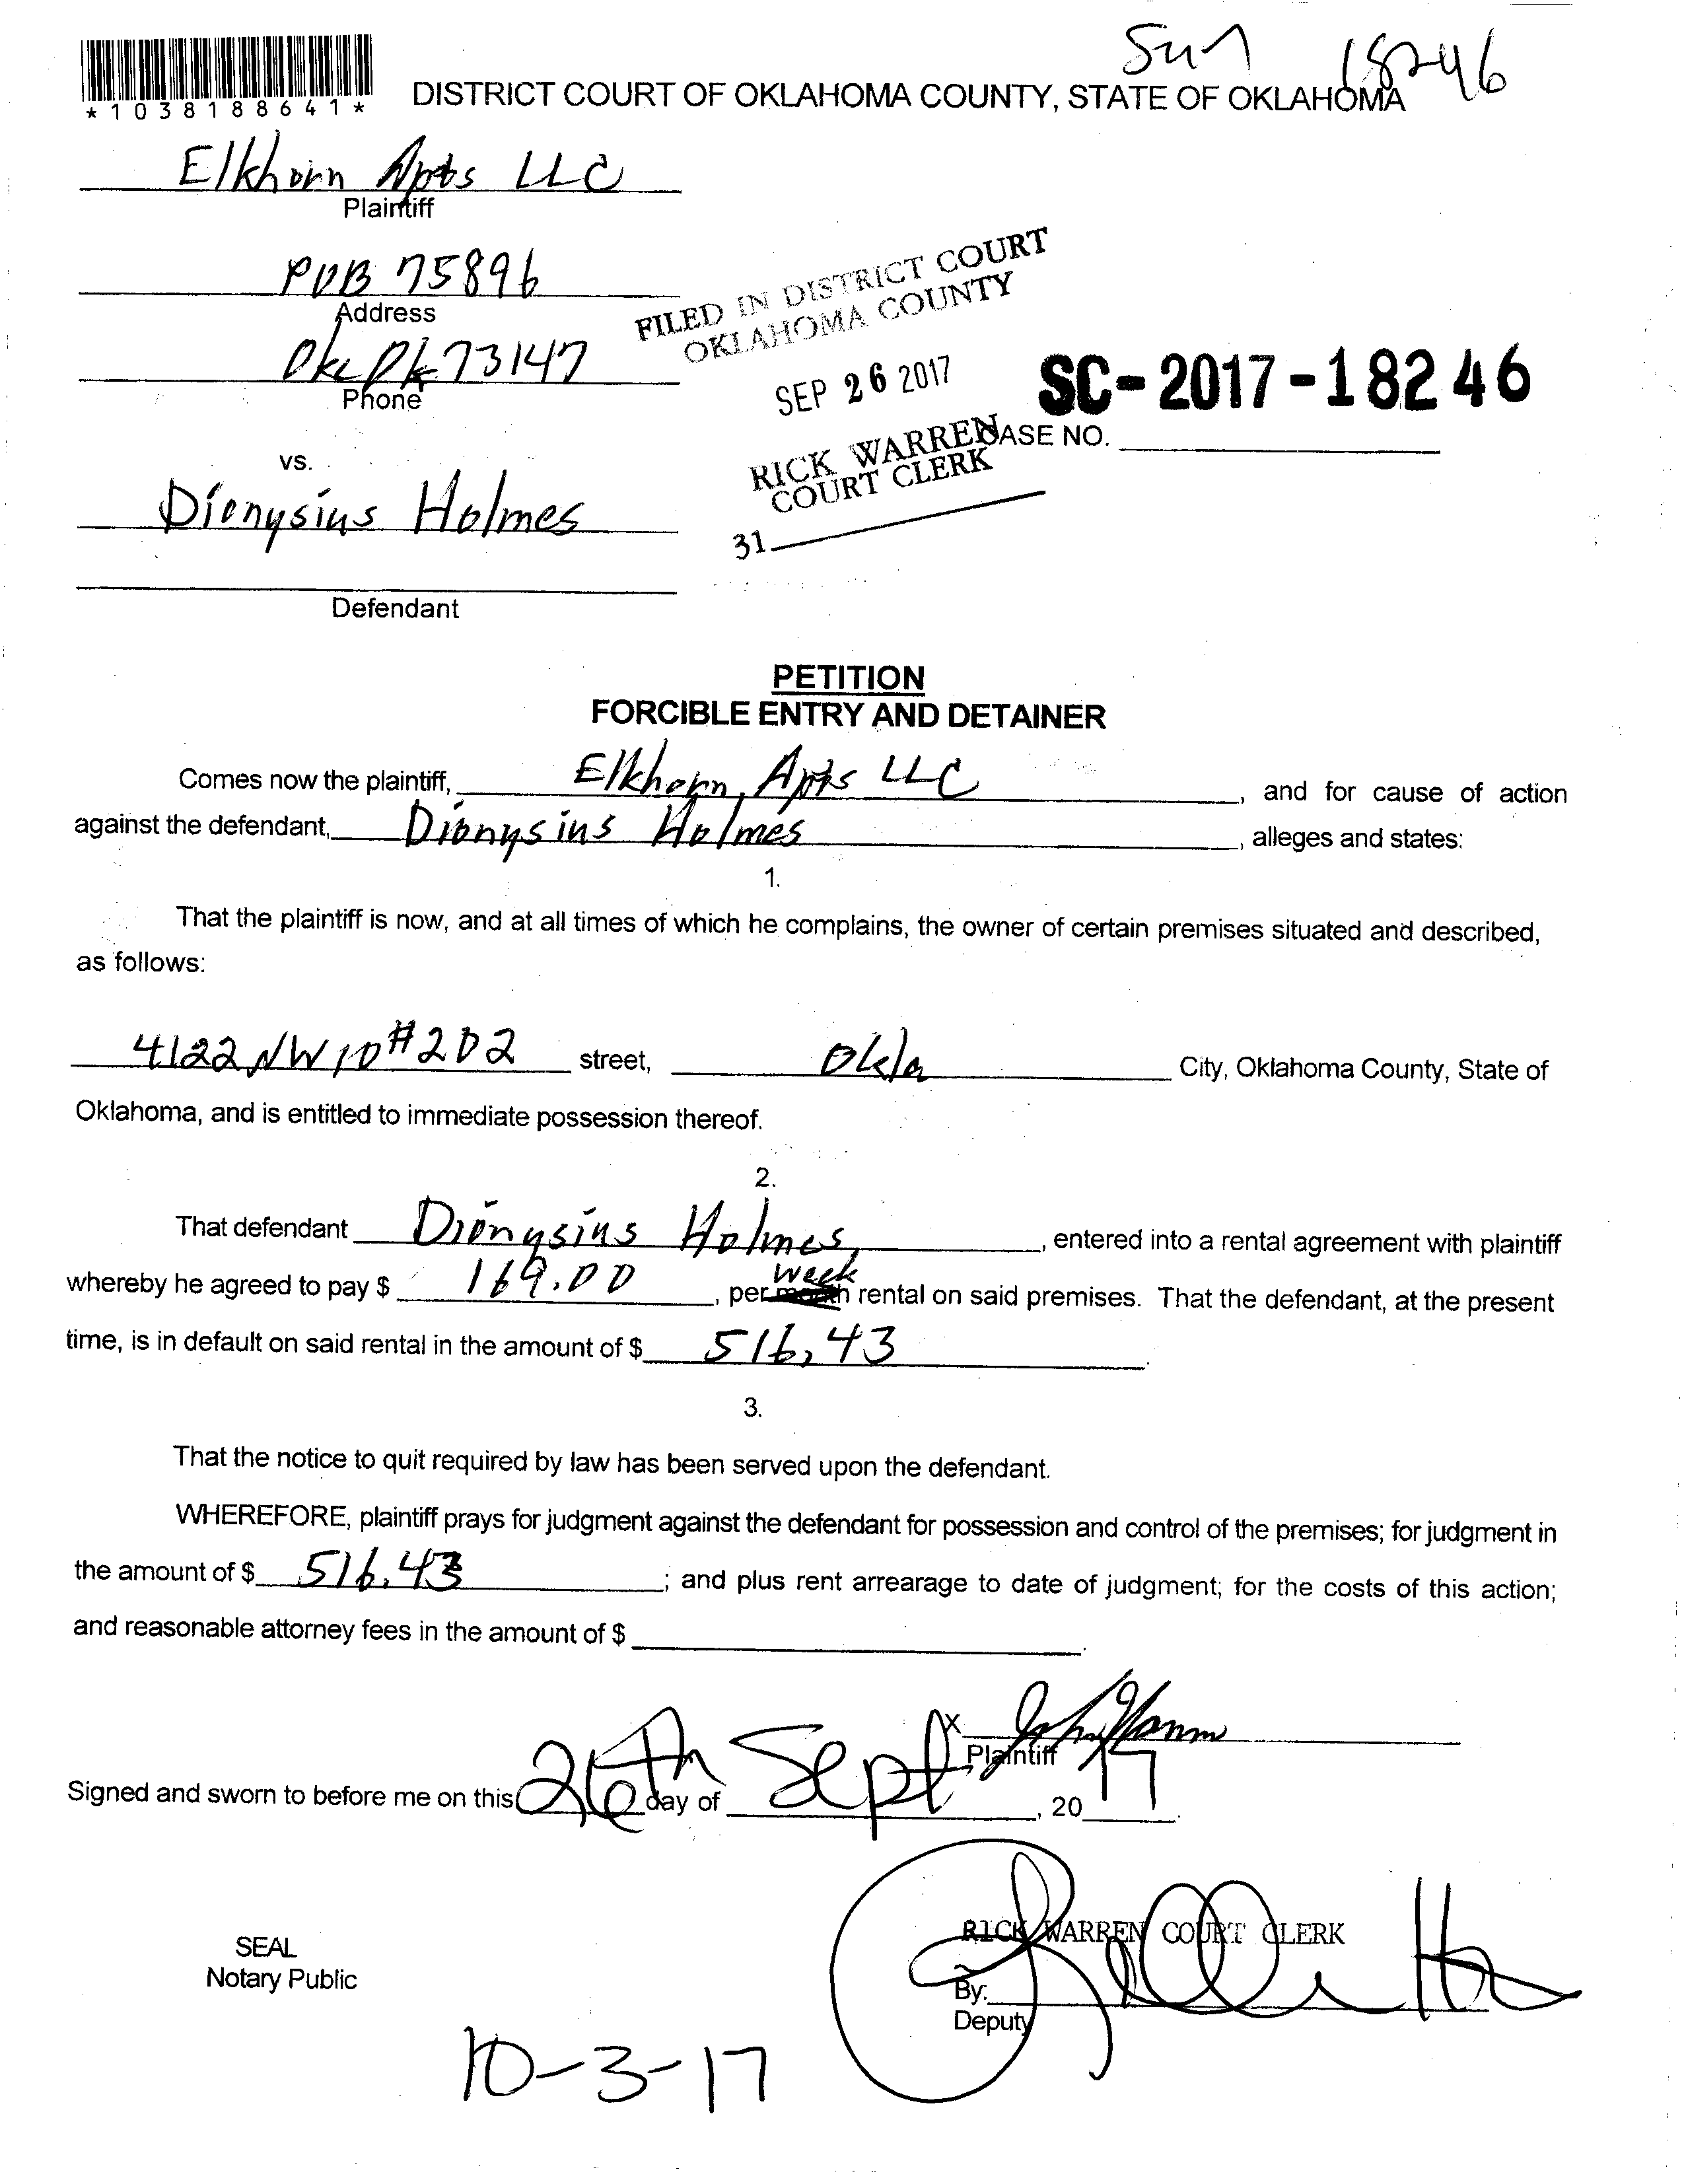 Sum 18246
*1038188641*
DISTRICT COURT OF OKLAHOMA COUNTY, STATE OF OKLAHOMA
Elkhorn Apts LLC
Plaintiff
POB 75896
Address
Okc Ok 73147
Phone
FILED IN DISTRICT COURT
OKLAHOMA COUNTY
SEP 26 2017
RICK WARREN
COURT CLERK
31
SC-2017-18246
CASE NO.
vs.
Dionysius Holmes
Defendant
PETITION
FORCIBLE ENTRY AND DETAINER
Comes now the plaintiff, Elkhorn Apts LLC, and for cause of action
against the defendant, Dionysius Holmes, alleges and states:
1.
That the plaintiff is now, and at all times of which he complains, the owner of certain premises situated and described,
as follows:
4122 NW 10 #202 street, Okla City, Oklahoma County, State of
Oklahoma, and is entitled to immediate possession thereof.
2.
That defendant Dionysius Holmes, entered into a rental agreement with plaintiff
whereby he agreed to pay $ 169.00, per month week rental on said premises. That the defendant, at the present
time, is in default on said rental in the amount of $ 516.43.
3.
That the notice to quit required by law has been served upon the defendant.
WHEREFORE, plaintiff prays for judgment against the defendant for possession and control of the premises; for judgment in
the amount of $ 516.43; and plus rent arrearage to date of judgment; for the costs of this action;
and reasonable attorney fees in the amount of $ .
x
Plaintiff
Signed and sworn to before me on this 26th day of Sept, 2017.
RICK WARREN COURT CLERK
SEAL
Notary Public
By:
Deputy
10-3-17